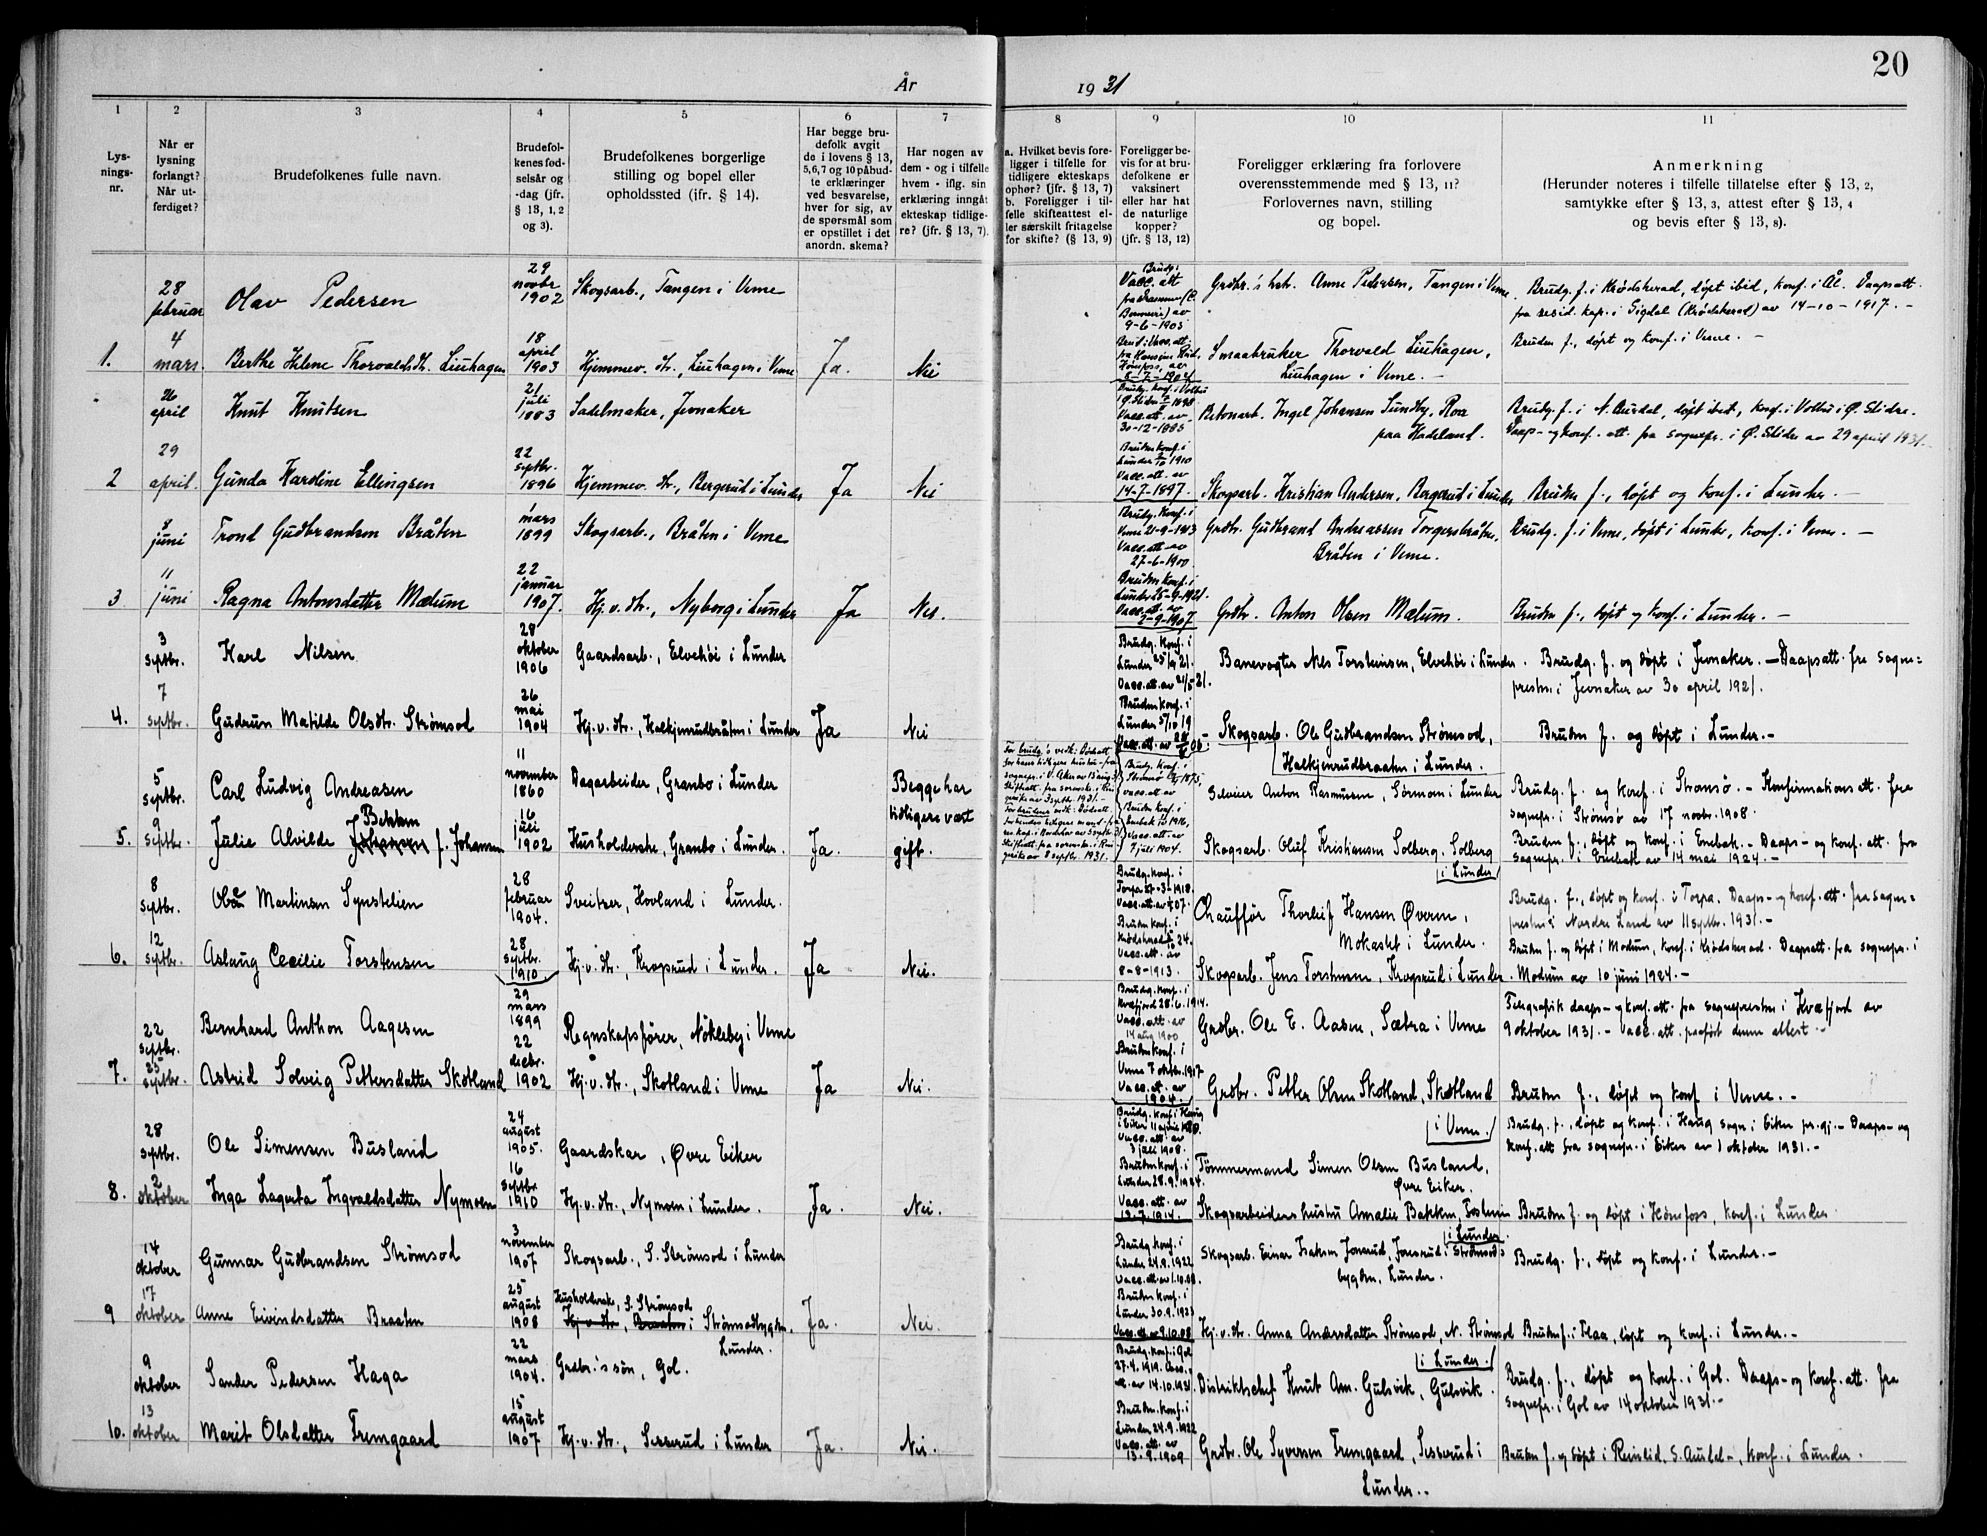 20
År
19 31
1
2
3
4
5
6
7
8
9
10
11
Lys-
nings-
nr.
Når er
lysning
forlangt?
Når ut-
ferdiget?
Brudefolkenes fulle navn.
Brudefol-
kenes fød-
selsår og
-dag (jfr.
§ 13, 1, 2
og 3).
Brudefolkenes borgerlige
stilling og bopel eller
opholdssted (ifr. § 14).
Har begge bru-
defolk avgit
de i lovens § 13,
5,6,7 og 10 påbud-
te erklæringer
ved besvarelse,
hver for sig, av
de spørsmål som
er opstillet i det
anordn. skema?
Har nogen av
dem - og i tilfelle
hvem - iflg. sin
erklæring inngåt
ekteskap tidlige-
re? (jfr. § 13, 7).
a. Hvilket bevis fore-
ligger i tilfelle for
tidligere ekteskaps
ophør? (jfr. § 13, 7)
b. Foreligger i til-
felle skifteattest el-
ler særskilt fritagelse
for skifte? (§ 13, 9)
Foreligger be-
vis for at bru-
defolkene er
vaksinert
eller har hat
de naturlige
kopper?
(jfr. § 13, 12)
Foreligger erklæring fra forlovere
overensstemmende med § 13, 11?
Forlovernes navn, stilling
og bopel.
Anmerkning
(Herunder noteres i tilfelle tillatelse efter § 13, 2,
samtykke efter § 13, 3, attest efter § 13, 4
og bevis efter § 13, 8).
28 februar
Olav Pedersen
29 novbr 1902
Skogsarb., Tangen i Veme
Brudg.:
Vacc. att
fra Drammen
av
9-6-1903
Grdbr.'s hst. Anne Pedersen, Tangen i Veme
Brudg. f. i Krødsherad, døpt ibid, konf. i Ål. Daapsatt.
fra resid. kap. i Sigdal (Krødsherad) av 14-10-1917. -
1.
4 mars.
Berthe Helene Thorvaldsdt. Liuhagen
18 april 1903
Hjemmev. dtr., Liuhagen i Veme
Ja.
Nei
Smaabruker Thorvald Liuhagen,
Liuhagen i Veme. -
Bruden f., døpt og konf. i Veme. -
26 april
Knut Knutsen
21 juli 1883
Sadelmaker, Jevnaker
Vacc. att. av
30-12-1885
Betonarb. Ingel Johansen Sundby, Roa
paa Hadeland.
Brudg. f. i N. Aurdal, døpt ibid, konf. i Volbu i Ø. Slidre.
Daaps- og konf. att. fra sognepr. i Ø. Slidre av 29 april 1931. -
2
29 april.
Gunda Karoline Ellingsen
22 septbr. 1896
Hjemmev. dtr., Bergerud i Lunder
Ja
Nei
Bruden konf. i
Lunder 1910
Vacc. att. av
14-7-1897.
Skogsarb. Kristian Andersen, Bergerud i Lunder
Bruden f., døpt og konf. i Lunder. -
juni
Trond Gudbrandsen Bråten
1 mars 1899
Skogsarb., Bråten i Veme
Brudg. konf. i
Veme 21-9-1913
Vacc. att. av
27-6-1900
Grdbr. Gudbrand Andreassen Torgersbråten,
Bråten i Veme.
Brudg. f. i Veme, døpt i Lunder, konf. i Veme. -
3
11 juni
Ragna Antonsdatter Mælum
22 januar 1907.
Hj. v. dtr., Nyborg i Lunder
Ja
Nei.
Bruden konf. i
Lunder 25-9-1921.
Vacc. att. av
2-9-1907
Grdbr. Anton Olsen Mælum.
Bruden f., døpt og konf. i Lunder. -
3 septbr.
Karl Nilsen
28 oktober 1906
Gaardsarb., Elvehöi i Lunder
Brudg. konf. i
Lunder 25/9 21.
Vacc. att. av 21/5 21.
Banevogter Nils Torsteinsen, Elvehöi i Lunder.
Brudg. f. og døpt i Jevnaker. - Daapsatt. fra sogne-
presten i Jevnaker av 30 april 1921.
4.
7 septbr.
Gudrun Matilde Olsdtr. Strømsod
26 mai 1904
Hj. v. dtr., Halkjenrudbråten i Lunder
Ja
Nei
Bruden konf. i
Lunder 5/10 19
Skogsarb. Ole Gudbrandsen Strømsod,
Halkjenrudbraaten i Lunder.
Bruden f. og døpt i Lunder. -
5 septbr.
Carl Ludvig Andreasen
11 november 1860
Dagarbeider, Granbo i Lunder
Begge har
tidligere vært
gift.
Anton Rasmussen, Sørmoen i Lunder
Brudg. f. og konf. i Strømsö. - Konfirmationsatt. fra
sognepr. i Strømsö av 17 novbr. 1908. -
5.
9 septbr.
Julie Alvilde Johansen Bekken f. Johansen
16 juli 1902
Husholderske, Granbo i Lunder.
Ja.
Vacc. att. av
7 juli 1904.
Skogsarb. Oluf Kristiansen Solberg, Solberg
i Lunder
Bruden f., døpt og konf. i Enebak. - Daaps- og konf. att. fra
sognepr. i Enebak av 14 mai 1924. -
8 septbr.
Martinsen Synstelien
28 februar 1904.
Sveitzer, Hovland i Lunder.
Brudg. konf. i
Torpa 27-3-1918.
Chaufför Thorleif Hansen Øveren,
Mokastet i Lunder.
Brudg. f., døpt og konf. i Torpa. Daaps- og konf. att. fra sogne-
presten i Nordre Land av 11 septbr. 1931. -
6.
12 septbr.
Aslaug Cecilie Torstensen
28 septbr. 1910
Hj. v. dtr., Krogsrud i Lunder.
Ja
Nei.
Bruden konf. i
Krødsherad 24.
Vacc. att. av
8-8-1913.
Skogsarb. Jens Torstensen, Krogsrud i Lunder.
Bruden f. og døpt i Modum, konf. i Krødsherad. Daapsatt. fra sognepr. i
Modum av 10 juni 1924. -
22 septbr.
Bernhard Anthon Aagesen
29 mars 1899
Regnskapsfører, Nökleby i Veme
Brudg. konf. i
Kvæfjord 28.6.1914.
Vacc. att. av
14 aug 1900
Grdbr. Ole E. Aasen, Sætra i Veme
Telegrafisk daaps- og konf. att. fra sognepresten i Kvæfjord av
9 oktober 1931. - Vacc. att. paaført denne attest. -
7.
25 septbr.
Astrid Solveig Pettersdatter Skotland
22 decbr. 1902
Hj. v. dtr., Skotland i Veme
Ja
Nei.
Bruden konf. i
Veme 7 oktbr. 1917
Vacc. att. av
1904.
Grdbr. Petter Olsen Skotland, Skotland
i Veme.
Bruden f., døpt og konf i Veme. -
28 septbr.
Ole Simensen Busland
24 august 1905.
Gaardskar, Øvre Eiker
Brudg. konf. i Haug
i Eiker 11 april 1920.
Vacc. att. av
3 juli 1908.
Tömmermand Simen Olsen Busland,
Øvre Eiker.
Brudg. f., døpt og konf. i Haug sogn i Eiker pr.gj. - Daaps- og
konf. att fra sognepr. i Eiker av 1 oktober 1931. -
8.
2 oktober
Inga Lagerta Ingvaldsdatter Nymoen
16 septbr 1910
Hj. v. dtr., Nymoen i Lunder.
Ja.
Nei.
Bruden konf. i
Lunder 28.9.1924.
Vacc. att. av
Skogsarbeiders hustru Amalie Bakken, Foslien
i Lunder
Bruden f. og døpt i Hönefoss, konf. i Lunder
14 oktober
Gunnar Gudbrandsen Strømsod
3 november 1907
Skogsarb., S. Strømsod i Lunder
Brudg. konf. i
Lunder 24.9.1922
Vacc. att. av 1.10.08.
Skogsarb. Einar Isaksen Jonsrud, Jonsrud i Strømsods-
bygden, Lunder.
Brudg. f., døpt og konf. i Lunder. -
9
17 oktober
Anne Eivindsdatter Braaten
25 august 1908
Husholderske, S. Strømsod
Hj. v. dtr, Braaten i Strømsodbygden.
Lunder.
Ja.
Nei.
Bruden konf. i
Lunder 30.9.1923
Vacc. att. av 9.10.08
Hj. v. dtr. Anna Andersdatter Strømsod, N. Strømsod
i Lunder.
Bruden f. i Flaa, døpt og konf. i Lunder. -
9 oktober
Sander Pedersen Haga
22 mars 1904.
Grdbr.'s søn, Gol.
Brudg. konf. i Gol
27.4.1919. Vacc.
att. av 14.10.1931
Distriktschef Knut Am. Gulsvik, Gulsvik.
Brudg. f., døpt og konf. i Gol. Daaps- og konf. att. fra
sognepr. i Gol av 14 oktober 1931. -
10.
13 oktober
Marit Olsdatter Fremgaard
15 august 1907
Hj. v. dtr., Sesserud i Lunder
Ja.
Nei.
Bruden konf. i
Lunder 24.9.1922
Vacc. att. av
13.9.1909
Grdbr. Ole Syversen Fremgaard, Sesserud i
Lunder. -
Bruden f. og døpt i Reinlid, S. Aurdal -, konf. i Lunder. -